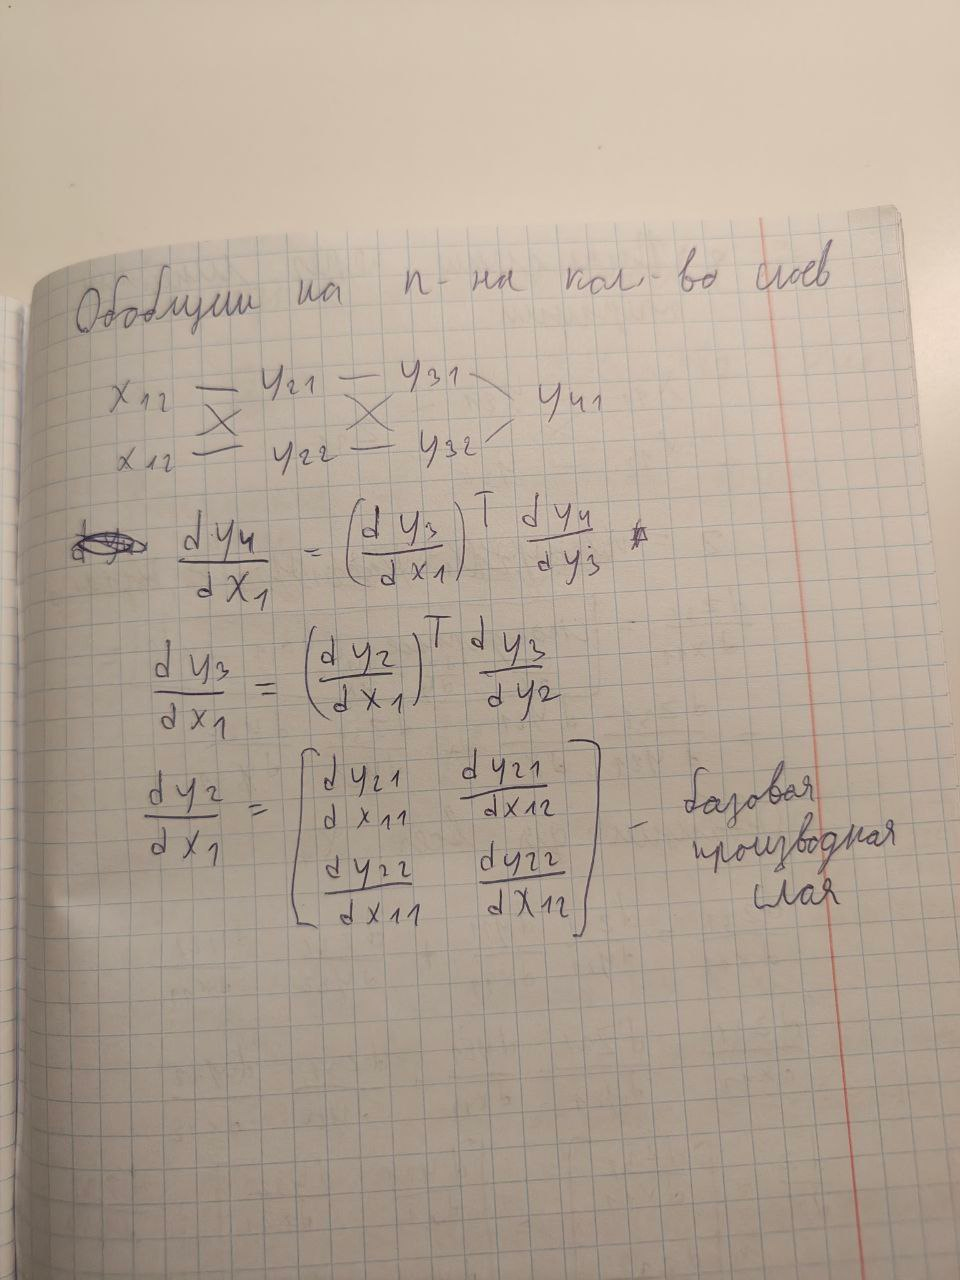 Обобщим на n- на кол-во слоев
x12 — y21 — y31
y41
x12 — y22 — y32
dy4/dx1 = (dy3/dx1)^T dy4/dy3
dy3/dx1 = (dy2/dx1)^T dy3/dy2
dy2/dx1 = [dy21/dx11 dy21/dx12
dy22/dx11 dy22/dx12] - базовая
производная
слоя